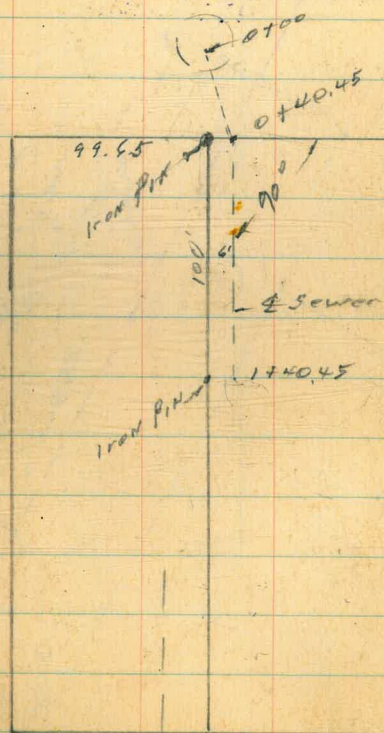 0+00
0+40.45
99.65
Iron PIN
90°
100'
6'
℄ Sewer
1+40.45
Iron PIN